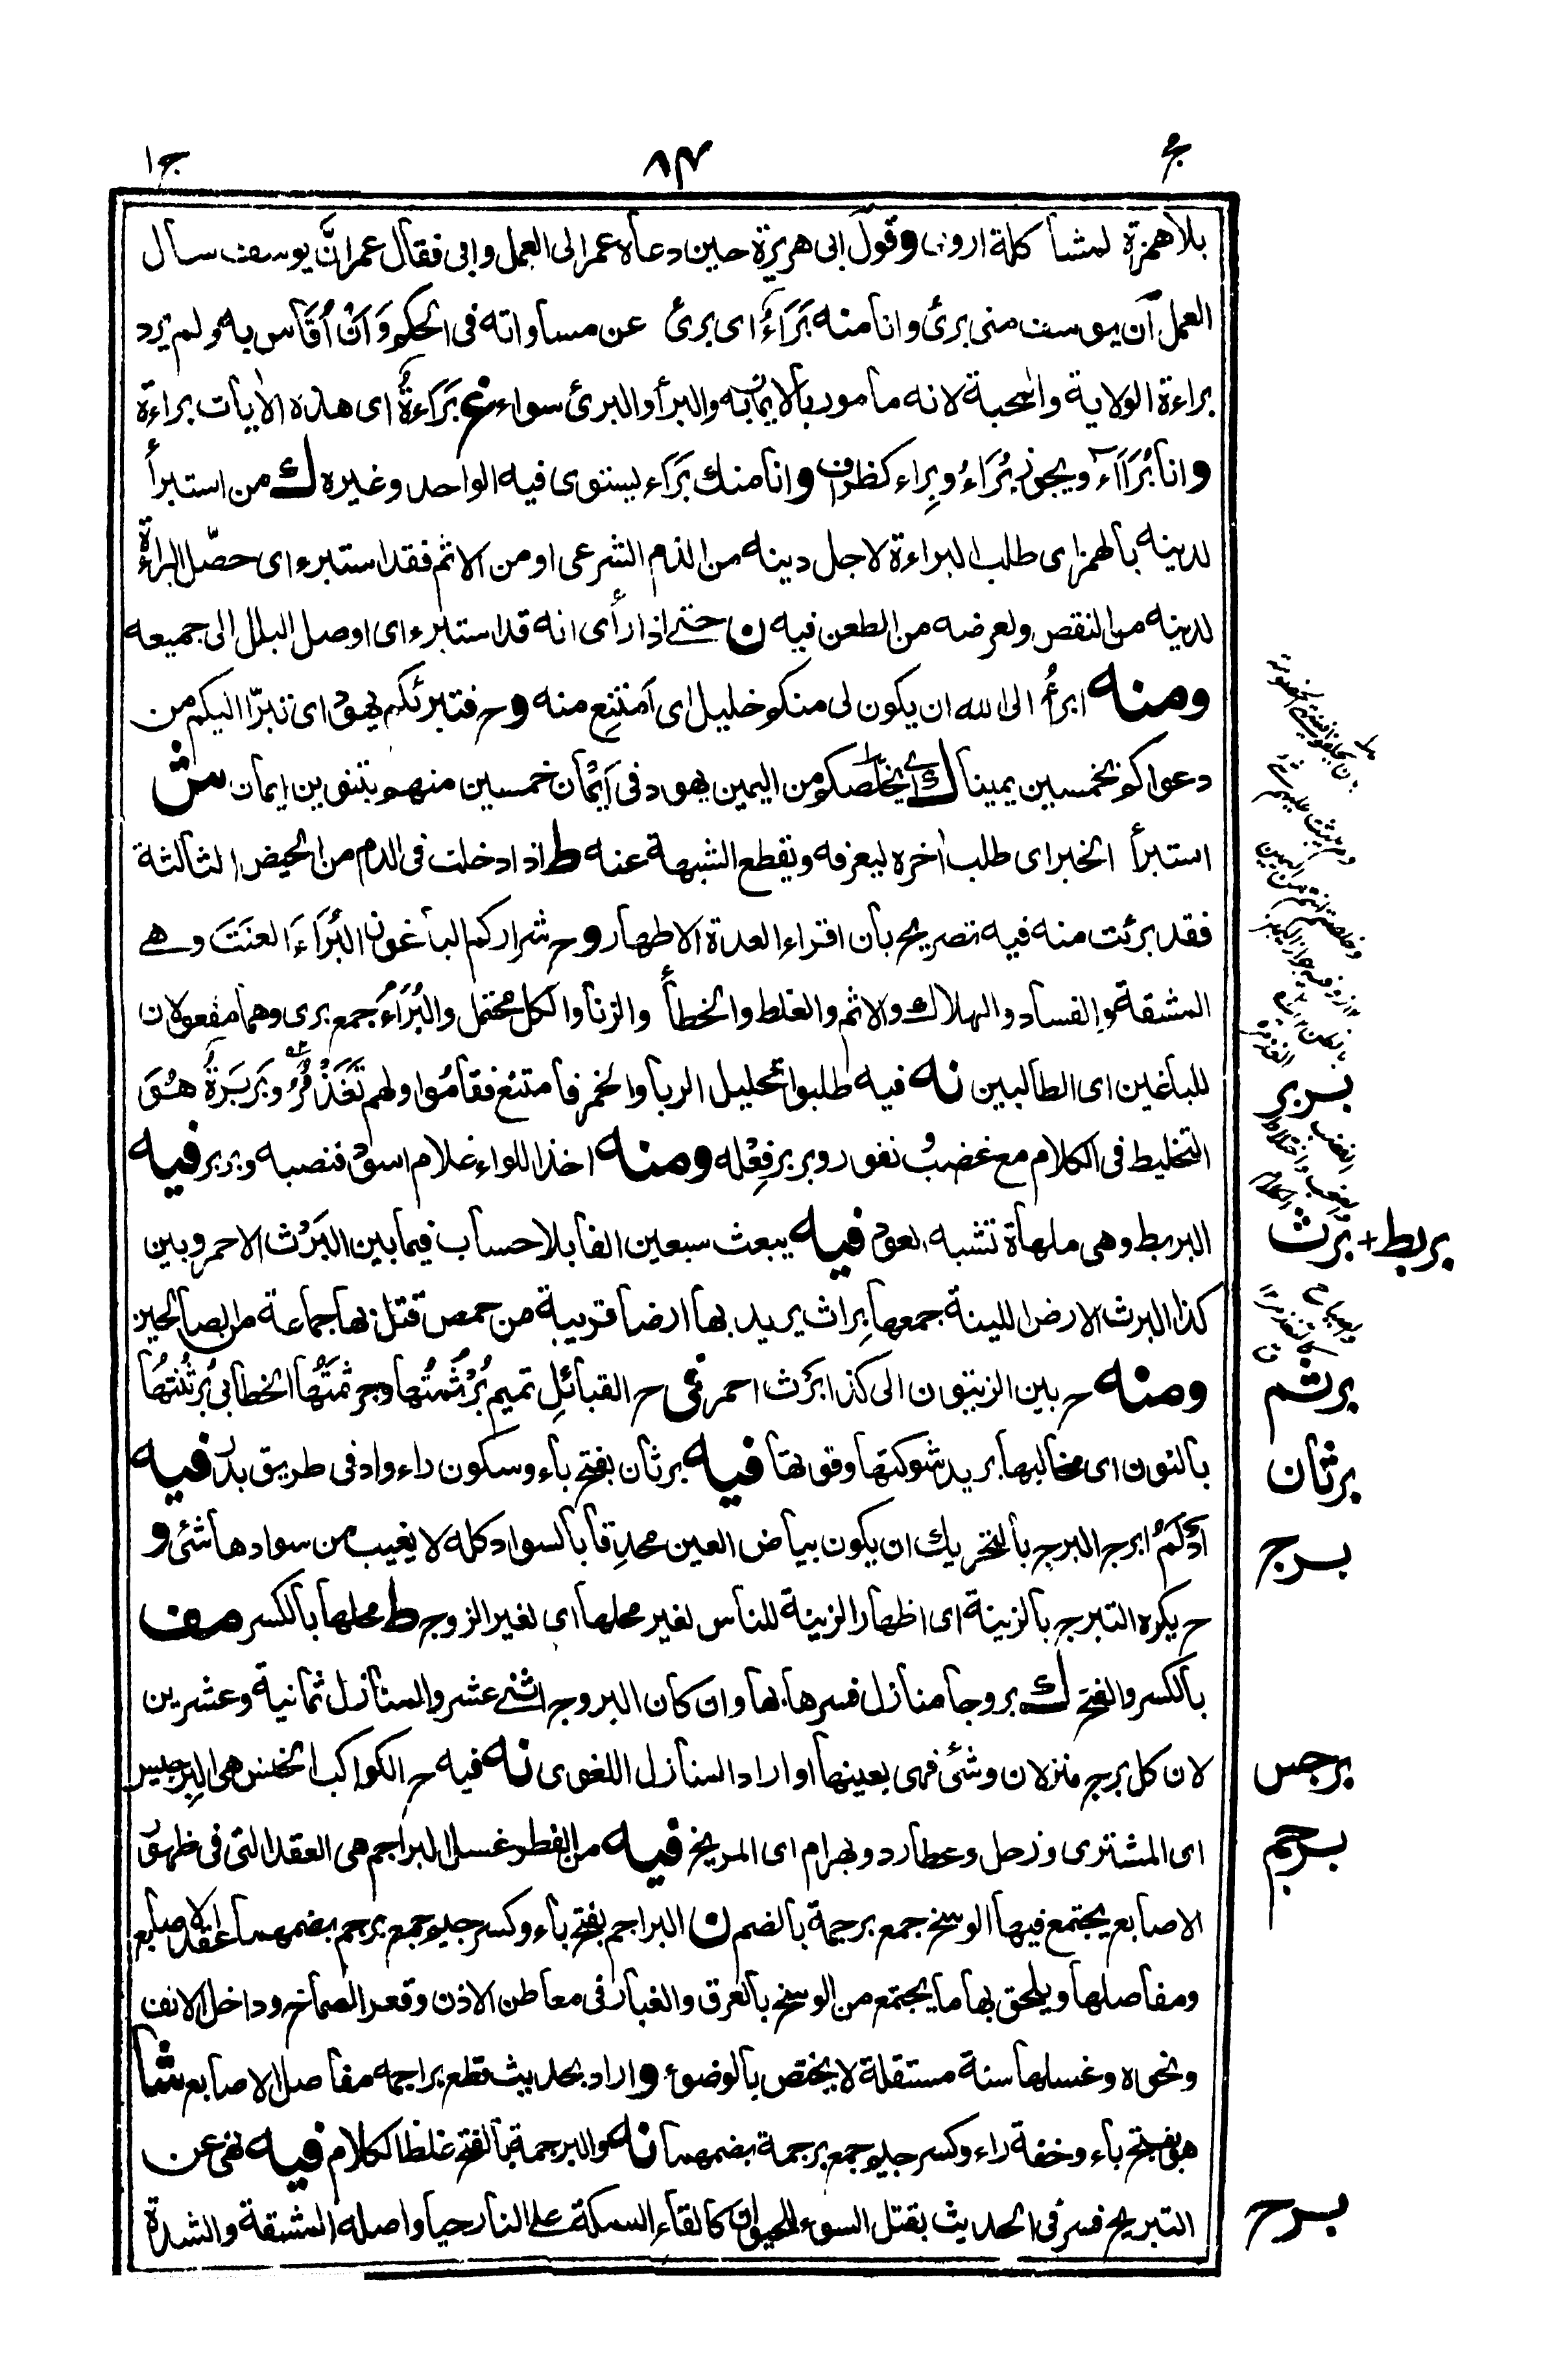 ج ٨٤ ج١
بلا همزة لمشاكلة اروى وقول ابى هريرة حين دعاه عمر الى العمل وابى فقال عمر انَّ يوسف سأل
العمل اَن يوسف منى برئ وانا منه بَرَاءُ اى برئ عن مساواته فى الحكم وَاَنْ اُقَاس به ولم يرد
براءة الولاية والمحبة لانه مامور بالايمان به والبرأ والبرئ سواء غ بَرَاءةُ اى هذه الايات براءة
وانا بُرَاَاءُ ويجوز بُرَاءُ وبِراء كظراف وانا منك بَرَاء يستوى فيه الواحد وغيره ك من استبرأ
لدينه بالهمز اى طلب البراءة لاجل دينه من الذم الشرعى او من الاثم فقد استبرء اى حصّل البراءة
لدينه من النقص ولعرضه من الطعن فيه ن حتى اذا رأى انه قد استبرء اى اوصل البلل الى جميعه
ومنه ابرأُ الى الله ان يكون لى منكم خليل اى اَمتنع منه وح فتبرئكم يهود اى تبرّا اليكم من
دعواكم بخمسين يمينا ك اى يخلصكم من اليمين يهود فى اَيْمَان خمسين منهم بتنوين ايمان ش
استبرأ الخبر اى طلب اخره ليعرفه ويقطع الشبهة عنه ط اذا دخلت فى الدم من الحيض الثالثة
فقد برئت منه فيه تصريح بان اقراء العدة الاطهار وح شراركم الباغون البُرَاءَ العنَتَ وهى
المشقة والفساد والهلاك والاثم والغلط والخطأ والزنا والكل محتمل والبُرَاءُ جمع برى وهما مفعولان
للباغين اى الطالبين نه فيه طلبوا تحليل الربا والخمر فامتنع فقاموا ولهم تَغَذْمُرُ وبَرْبَرةُ هو
التخليط فى الكلام مع غضب نفور وبربر فِعْله ومنه اخذ اللواء غلام اسود فنصبه وبربر فيه
البربط وهى ملهاة تشبه العود فيه يبعث سبعين الفا بلا حساب فيما بين البَرْث الاحمر وبين
كذا البرث الارض اللينة جمعها بِراث يريد بها ارضا قريبة من حمص قتل بها جماعة من الصالحين
ومنه ح بين الزيتون الى كذا بَرْث احمر غى ح القبائلِ تميم بُرْثُمتُها وجرثمَتُها الخطابى بُرْثُنتُها
بالنون اى مخالبها يريد شوكتها وقوتها فيه برثان بفتح باء وسكون راء واد فى طريق بدر فيه
اَدْلَمُ ابرج البرج بالتحريك ان يكون بياض العين محدِقا بالسواد كله لا يغيب من سوادها شئ و
ح يكره التبرج بالزينة اى اظهار الزينة للناس لغير محلها اى لغير الزوج ط محلها بالكسر مف
بالكسر والفتح ك بروجا منازل فسرها بها وان كان البروج اثنى عشر والمنازل ثمانية وعشرين
لان كل برج منزلان وشئ فهى بعينها او اراد المنازل اللغوى نه فيه ح الكواكب الخنس هى البِرجيس
اى المشترى وزحل وعطارد وبهرام اى المريخ فيه من الفطرة غسل البراجم هى العقد التى فى ظهور
الاصابع يجتمع فيها الوسخ جمع برجمة بالضم ن البراجم بفتح باء وكسر جيم جمع برجم بضمهما عقد الاصابع
ومفاصلها ويلحق بها ما يجتمع من الوسخ بالعرق والغبار فى معاطن الاذن وقعر الصماخ وداخل الانف
ونحوه وغسلها سنة مستقلة لا يختص بالوضوء واراد بحديث قطع براجمه مفاصل الاصابع شا
هو بفتح باء وخفة راء وكسر جيم جمع برجمة بضمهما نه والبرجمة بالفتح غلظ الكلام فيه نهى عن
التبريح فسر فى الحديث بقتل السوء للحيوان كالقاء السمكة على النار حيا واصله المشقة والشدة
بربر
بربط + برث
برثم
برثان
برج
برجس
برجم
برح